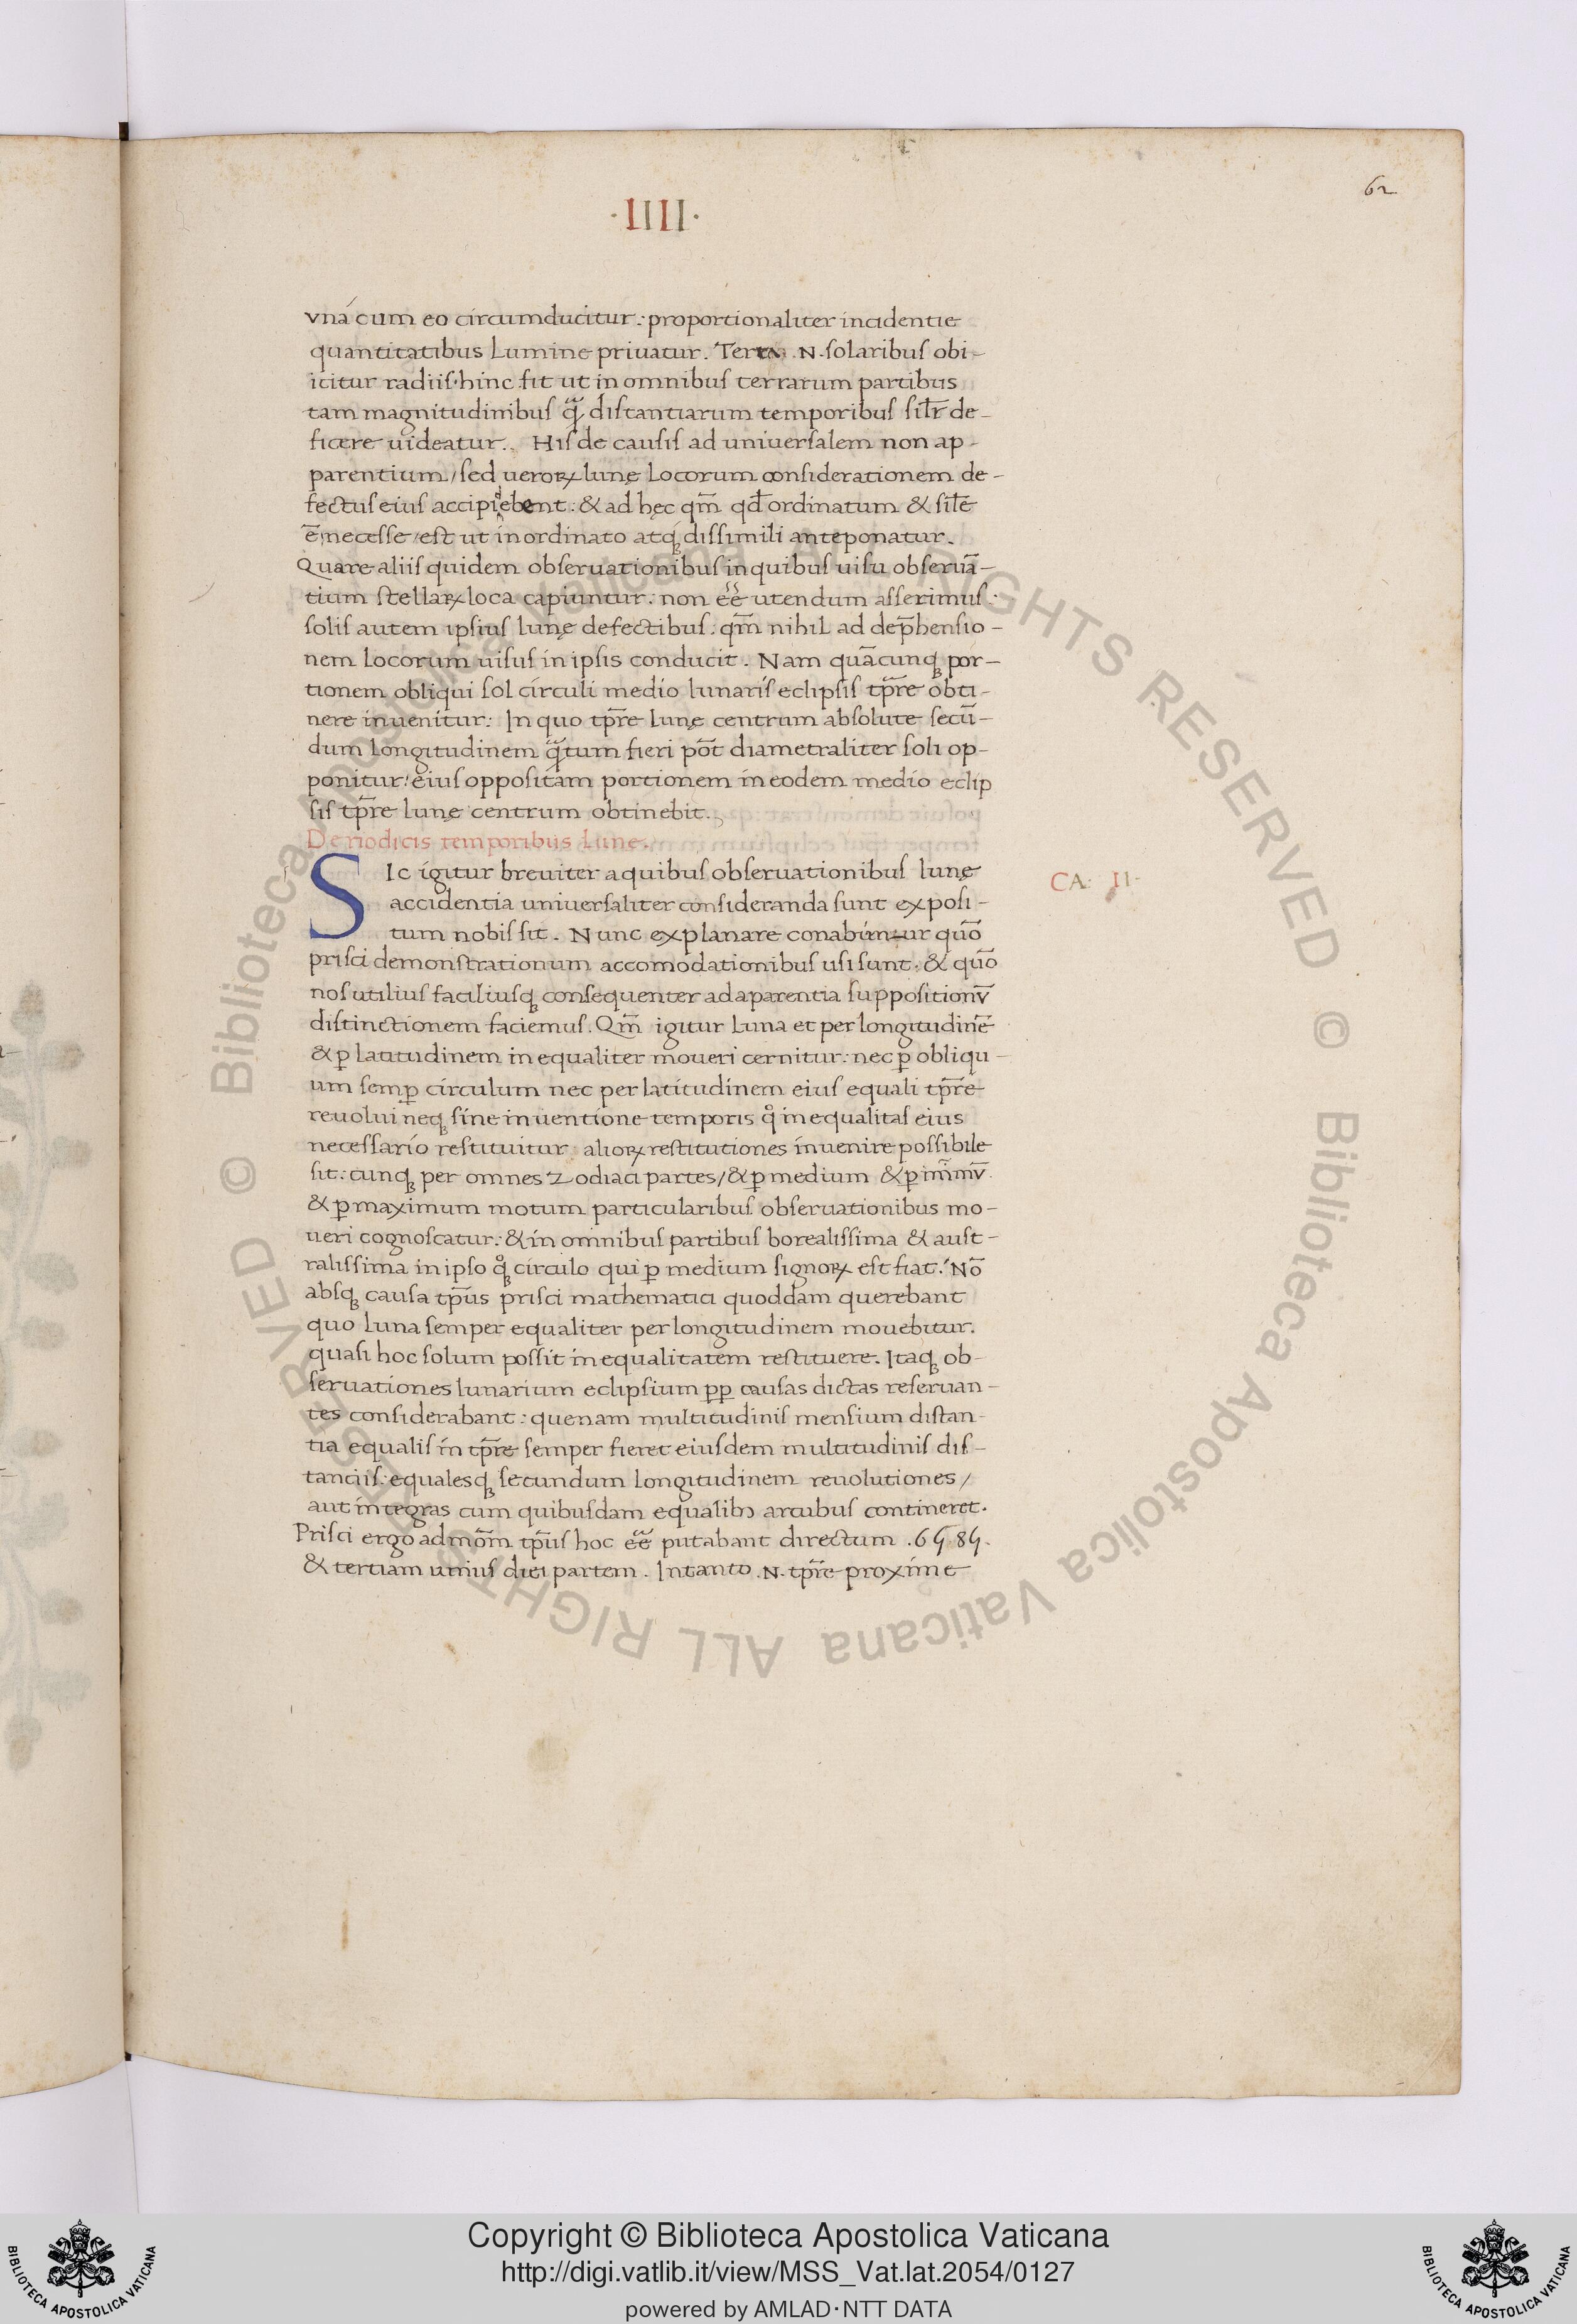 62
·IIII·
vná cum eo circumducitur: proportionaliter incidentie
quantitatibus lumine priuatur. Terra .N. solaribus obi-
icitur radiis. hinc fit ut in omnibus terrarum partibus
tam magnitudinibus q̃ distantiarum temporibus sil̃r de-
ficere uideatur. His de causis ad uniuersalem non ap-
parentium/ sed ueroꝝ lunę locorum considerationem de-
fectus eius accipi debent: & ad hęc qm̃ qd̃ ordinatum & sil̃e
ẽ, necesse est ut inordinato atqꝫ dissimili anteponatur.
Quare aliis quidem obseruationibus in quibus uisu obseruã-
tium stellaꝝ loca capiuntur: non ẽe utendum asserimus:
solis autem ipsius lunę defectibus: qm̃ nihil ad dep̃hensio-
nem locorum uisus in ipsis conducit. Nam quãcunqꝫ por-
tionem obliqui sol circuli medio lunaris eclipsis tp̃re obti-
nere inuenitur: In quo tp̃re lunę centrum absolute secũ-
dum longitudinem q̃tum fieri põt diametraliter soli op-
ponitur: eius oppositam portionem in eodem medio eclip
sis tp̃re lunę centrum obtinebit.
De riodicis temporibus Lune.
SIc igitur breuiter a quibus obseruationibus lunę
CA: II·
accidentia uniuersaliter consideranda sunt exposi-
tum nobis sit. Nunc explanare conabimur quõ
prisci demonstrationum accomodationibus usi sunt. & quõ
nos utilius faciliusqꝫ consequenter ad aparentia suppositionv̄
distinctionem faciemus. Qm̃ igitur luna et per longitudinẽ
& ꝑ latitudinem inequaliter moueri cernitur: nec ꝑ obliqu-
um semꝑ circulum nec per latitudinem eius equali tp̃re
reuolui neqꝫ sine inuentione temporis q̊ inequalitas eius
necessario restituitur alioꝝ restitutiones inuenire possibile
sit: cunqꝫ per omnes zodiaci partes/ & ꝑ medium & ꝑ minimv̄
& ꝑ maximum motum particularibus obseruationibus mo-
ueri cognoscatur: & in omnibus partibus borealissima & aust-
ralissima in ipso q̊qꝫ circulo qui ꝑ medium signoꝝ est fiat. Nõ
absqꝫ causa tp̃us prisci mathematici quoddam querebant
quo luna semper equaliter per longitudinem mouebitur.
quasi hoc solum possit inequalitatem restituere. Itaqꝫ ob-
seruationes lunarium eclipsium ꝑꝑ causas dictas reseruan-
tes considerabant: quenam multitudinis mensium distan-
tia equalis in tp̃re semper fieret eiusdem multitudinis dis-
tanciis: equalesqꝫ secundum longitudinem reuolutiones/
aut integras cum quibusdam equalibꝫ arcubus contineret.
Prisci ergo ad mõm tp̃us hoc ẽe putabant directum .6585.
& tertiam unius diei partem. In tanto .N. tp̃re proxime
© Biblioteca Apostolica Vaticana ALL RIGHTS RESERVED © Biblioteca Apostolica Vaticana ALL RIGHTS RESERVED
Copyright © Biblioteca Apostolica Vaticana
http://digi.vatlib.it/view/MSS_Vat.lat.2054/0127
powered by AMLAD·NTT DATA
BIBLIOTECA APOSTOLICA VATICANA
BIBLIOTECA APOSTOLICA VATICANA